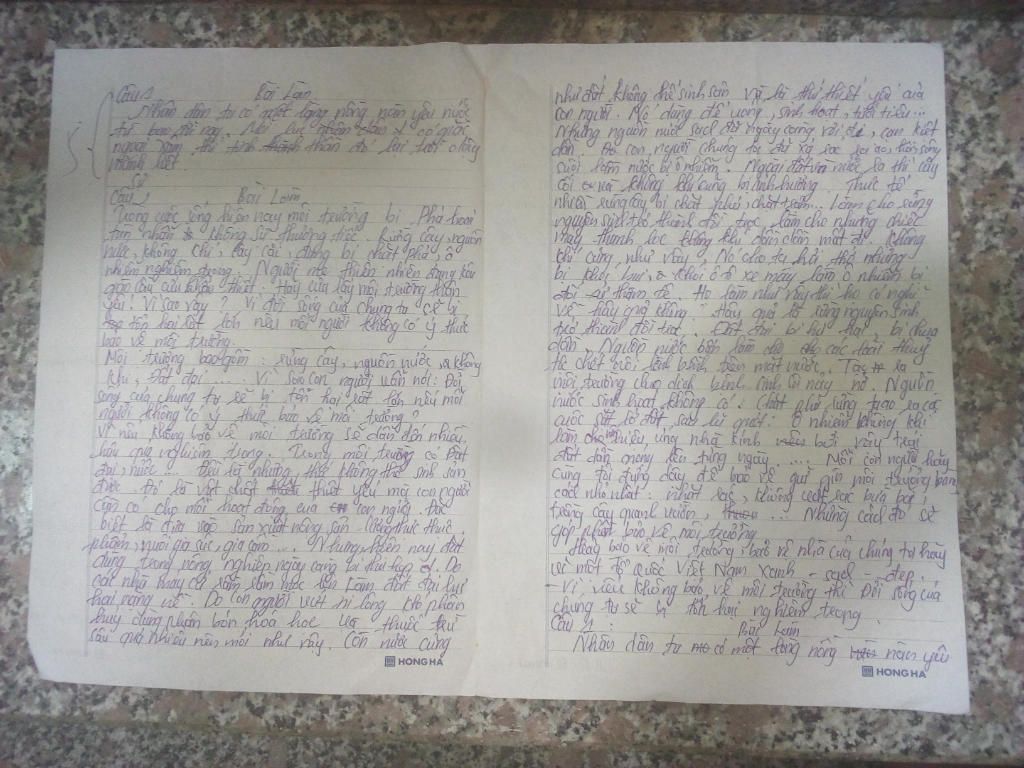 Câu 1 Bài Làm
Nhân dân ta có một lòng nồng nàn yêu nước
từ bao đời nay. Mỗi lực
ngoại xâm thì tinh thần đó lại
mãnh liệt.
Câu 2 Bài Làm
Trong cuộc sống hiện nay môi trường bị Phá hoại
tàn nhẫn không sự thương tiếc. Rừng cây, nguồn
nước, không chí, cây cối, đang bị chặt phá, ô
nhiễm nghiêm trọng. Người mẹ thiên nhiên đang kêu
gào cầu cứu thảm thiết: Hãy cứu lấy môi trường thân
yêu! Vì sao vậy? Vì đời sống của chúng ta sẽ bị
tổn hại rất lớn nếu mỗi người không có ý thức
bảo vệ môi trường.
Môi trường bao gồm: rừng cây, nguồn nước, không
khí, đất đai .... Vì sao con người vẫn nói: Đời
sống của chúng ta sẽ bị tổn hại rất lớn nếu mỗi
người không có ý thức bảo vệ môi trường?
Vì nếu không bảo vệ môi trường sẽ dẫn đến nhiều
hậu quả nghiêm trọng. Trong môi trường có Đất
đai, nước ... Đều là những thứ không thể sinh sản
được. Đó là vật chất thiết yếu mà con người
cần có cho mỗi hoạt động của con người. Đặc
biệt là đưa vào sản xuất nông sản lương thực thực
phẩm, nuôi gia súc, gia cầm.... Nhưng hiện nay đất
dùng trong nông nghiệp ngày càng bị thu hẹp Do
các nhà máy cứ làm đất đai hư
hại nặng nề. Do con người vứt ni lông khó phân
hủy dùng phân bón hóa học và thuốc trừ
sâu quá nhiều nên mới như vậy. Còn nước cũng
HONG HA
như đất, không thể sinh sản và là thứ thiết yếu của
con người. Nó dùng để uống, sinh hoạt, tưới tiêu...
Những nguồn nước sạch đó ngày càng vơi đi, cạn kiệt
dần. Do con người chúng ta đã xả rác ra ao, hồ, sông
suối làm nước bị ô nhiễm. Ngoài đất và nước ra thì cây
cối và không khí cũng bị ảnh hưởng. Thực tế
nhiều rừng cây bị chặt phá, chặt trộm... Làm cho rừng
nguyên sinh trở thành đồi trọc, làm cho những chiếc
máy thanh lọc không khí dần dần mất đi. Không
chỉ cứng như vậy. Nó còn ta hít thở nhưng
bị khói bụi, khói ô tô xe máy làm ô nhiễm bị
thậm tệ. Họ làm như vậy thì họ có nghĩ
về hậu quả không? Hậu quả là rừng nguyên sinh
trở thành đồi trọc. Đất đai bị hư hại, bị
dần. Nguồn nước bẩn làm cho các loài thủy
tức chết nổi lềnh bềnh trên mặt nước. ra
môi trường cho dịch bệnh sinh sôi nảy nở. Nguồn
nước sinh hoạt không có. Chặt phá rừng tạo ra các
cuộc sạt lở đất, Ô nhiễm không khí
làm cho hiệu ứng nhà kính vây trái
đất dần nóng lên từng ngày .... Mỗi con người hãy
cùng tôi đứng dậy để bảo vệ giữ gìn môi trường bằng
cách nhỏ nhất: nhặt rác, không vứt rác bừa bãi,
trồng cây quanh vườn, ... Những cách đó sẽ
góp phần bảo vệ môi trường
Hãy bảo vệ môi trường bảo vệ nhà của chúng ta hãy
vì một tổ quốc Việt Nam xanh - sạch - đẹp.
- Vì nếu không bảo vệ môi trường thì Đời sống của
chúng ta sẽ bị tổn hại nghiêm trọng.
Câu 1: Bài Làm
Nhân dân ta có một lòng nồng nàn yêu
HONG HA